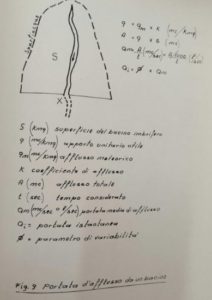 Spartiacque
S
X
q = qm × K (mc/Kmq)
A = q × S (mc)
S (Kmq) superficie del bacino imbrifero
q (mc/Kmq) apporto unitario utile
qm (mc/Kmq) afflusso meteorico
K coefficiente di afflusso
A (mc) afflusso totale
t (sec) tempo considerato
Qm (mc/sec o l/sec) portata media di afflusso
Qi = portata istantanea
Ø = parametro di variabilità
Fig. 9 Portata d'afflusso da un bacino